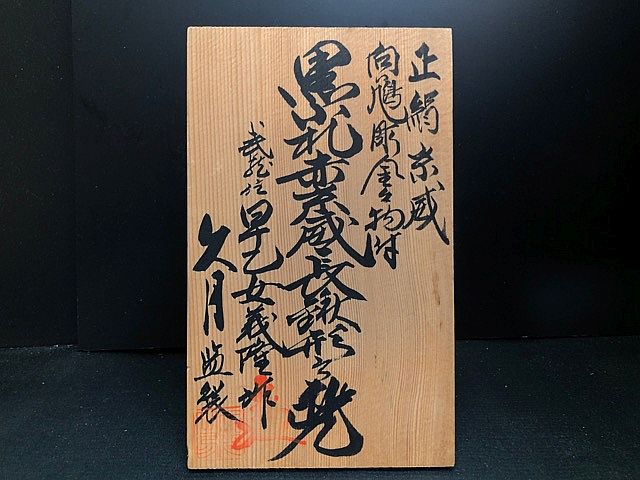 正絹糸威
向鷹彫金物附
黒札赤糸威長鍬形之兜
武蔵住
早乙女義隆作
久月監製